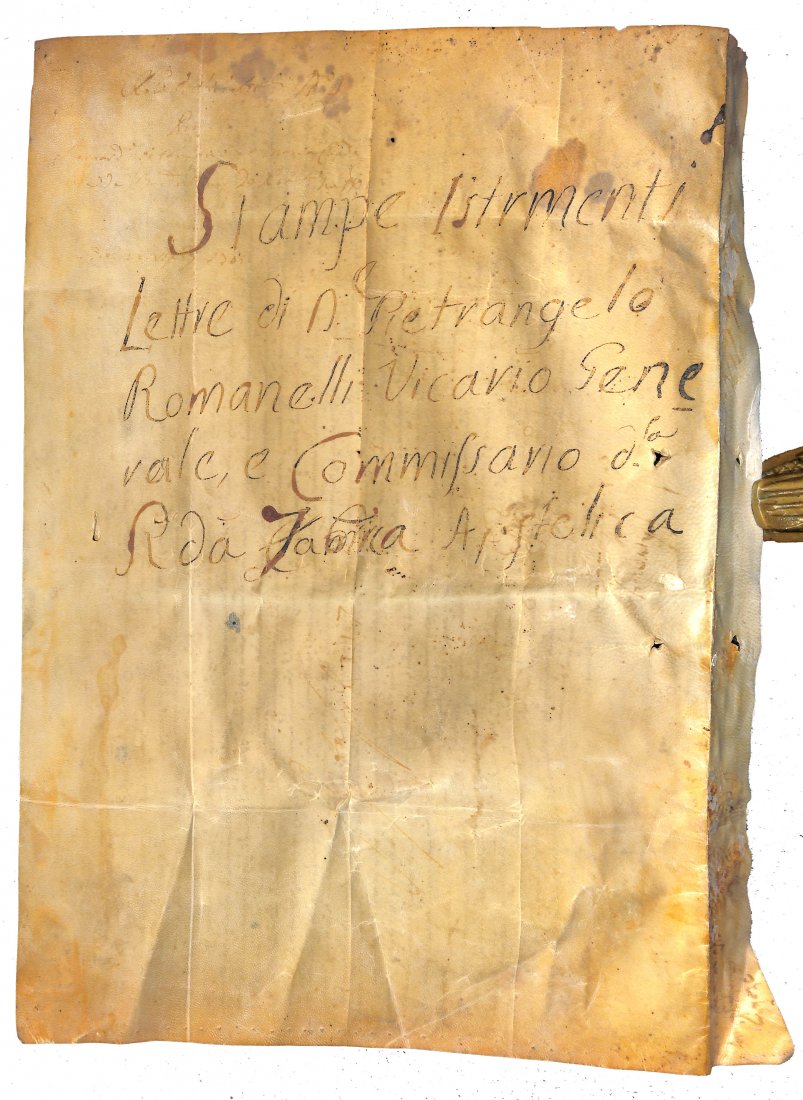 Stampe Istrmenti
Lettre di D. Pietrangelo
Romanelli Vicario Gene
rale, e Commissario d.la
Rda Fabrica Apstolica